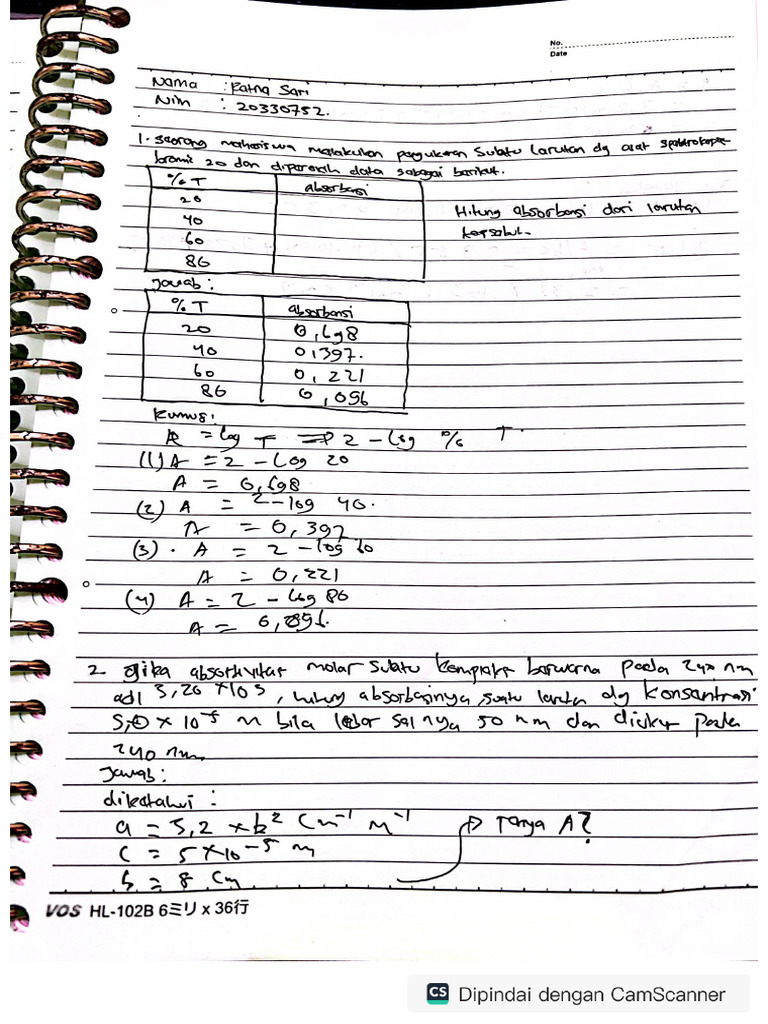 No.
Date
Nama : Ratna Sari
Nim : 20330752.
1. Seorang mahasiswa melakukan pengukuran Suatu Larutan dg alat
20 dan diperoleh data sebagai berikut.
%T absorbansi
20
40
60
86
Hitung absorbansi dari larutan
tersebut.
Jawab :
%T absorbansi
20 0,698
40 0,397.
60 0,221
86 0,056
Rumus:
A = log T => 2 - log % T.
(1) A = 2 - Log 20
A = 0,698
(2) A = 2 - log 40.
A = 0,397
(3) . A = 2 - log 60
A = 0,221
(4) A = 2 - log 86
A =
2. Jika absortivitas molar suatu kompleks berwarna pada 240 nm
adl 3,20 x 10 3, hitung absorbasinya suatu larutan dg konsentrasi
5,0 x 10⁻⁵ m bila lebar sel nya 50 nm dan diukur pada
240 nm.
Jawab :
diketahui :
a = 3,2 x Cm⁻¹ M⁻¹ → Tanya A?
C = 5 x 10⁻⁵ m
b = 8 Cm
VOS HL-102B 6ミリ x 36行
CS Dipindai dengan CamScanner